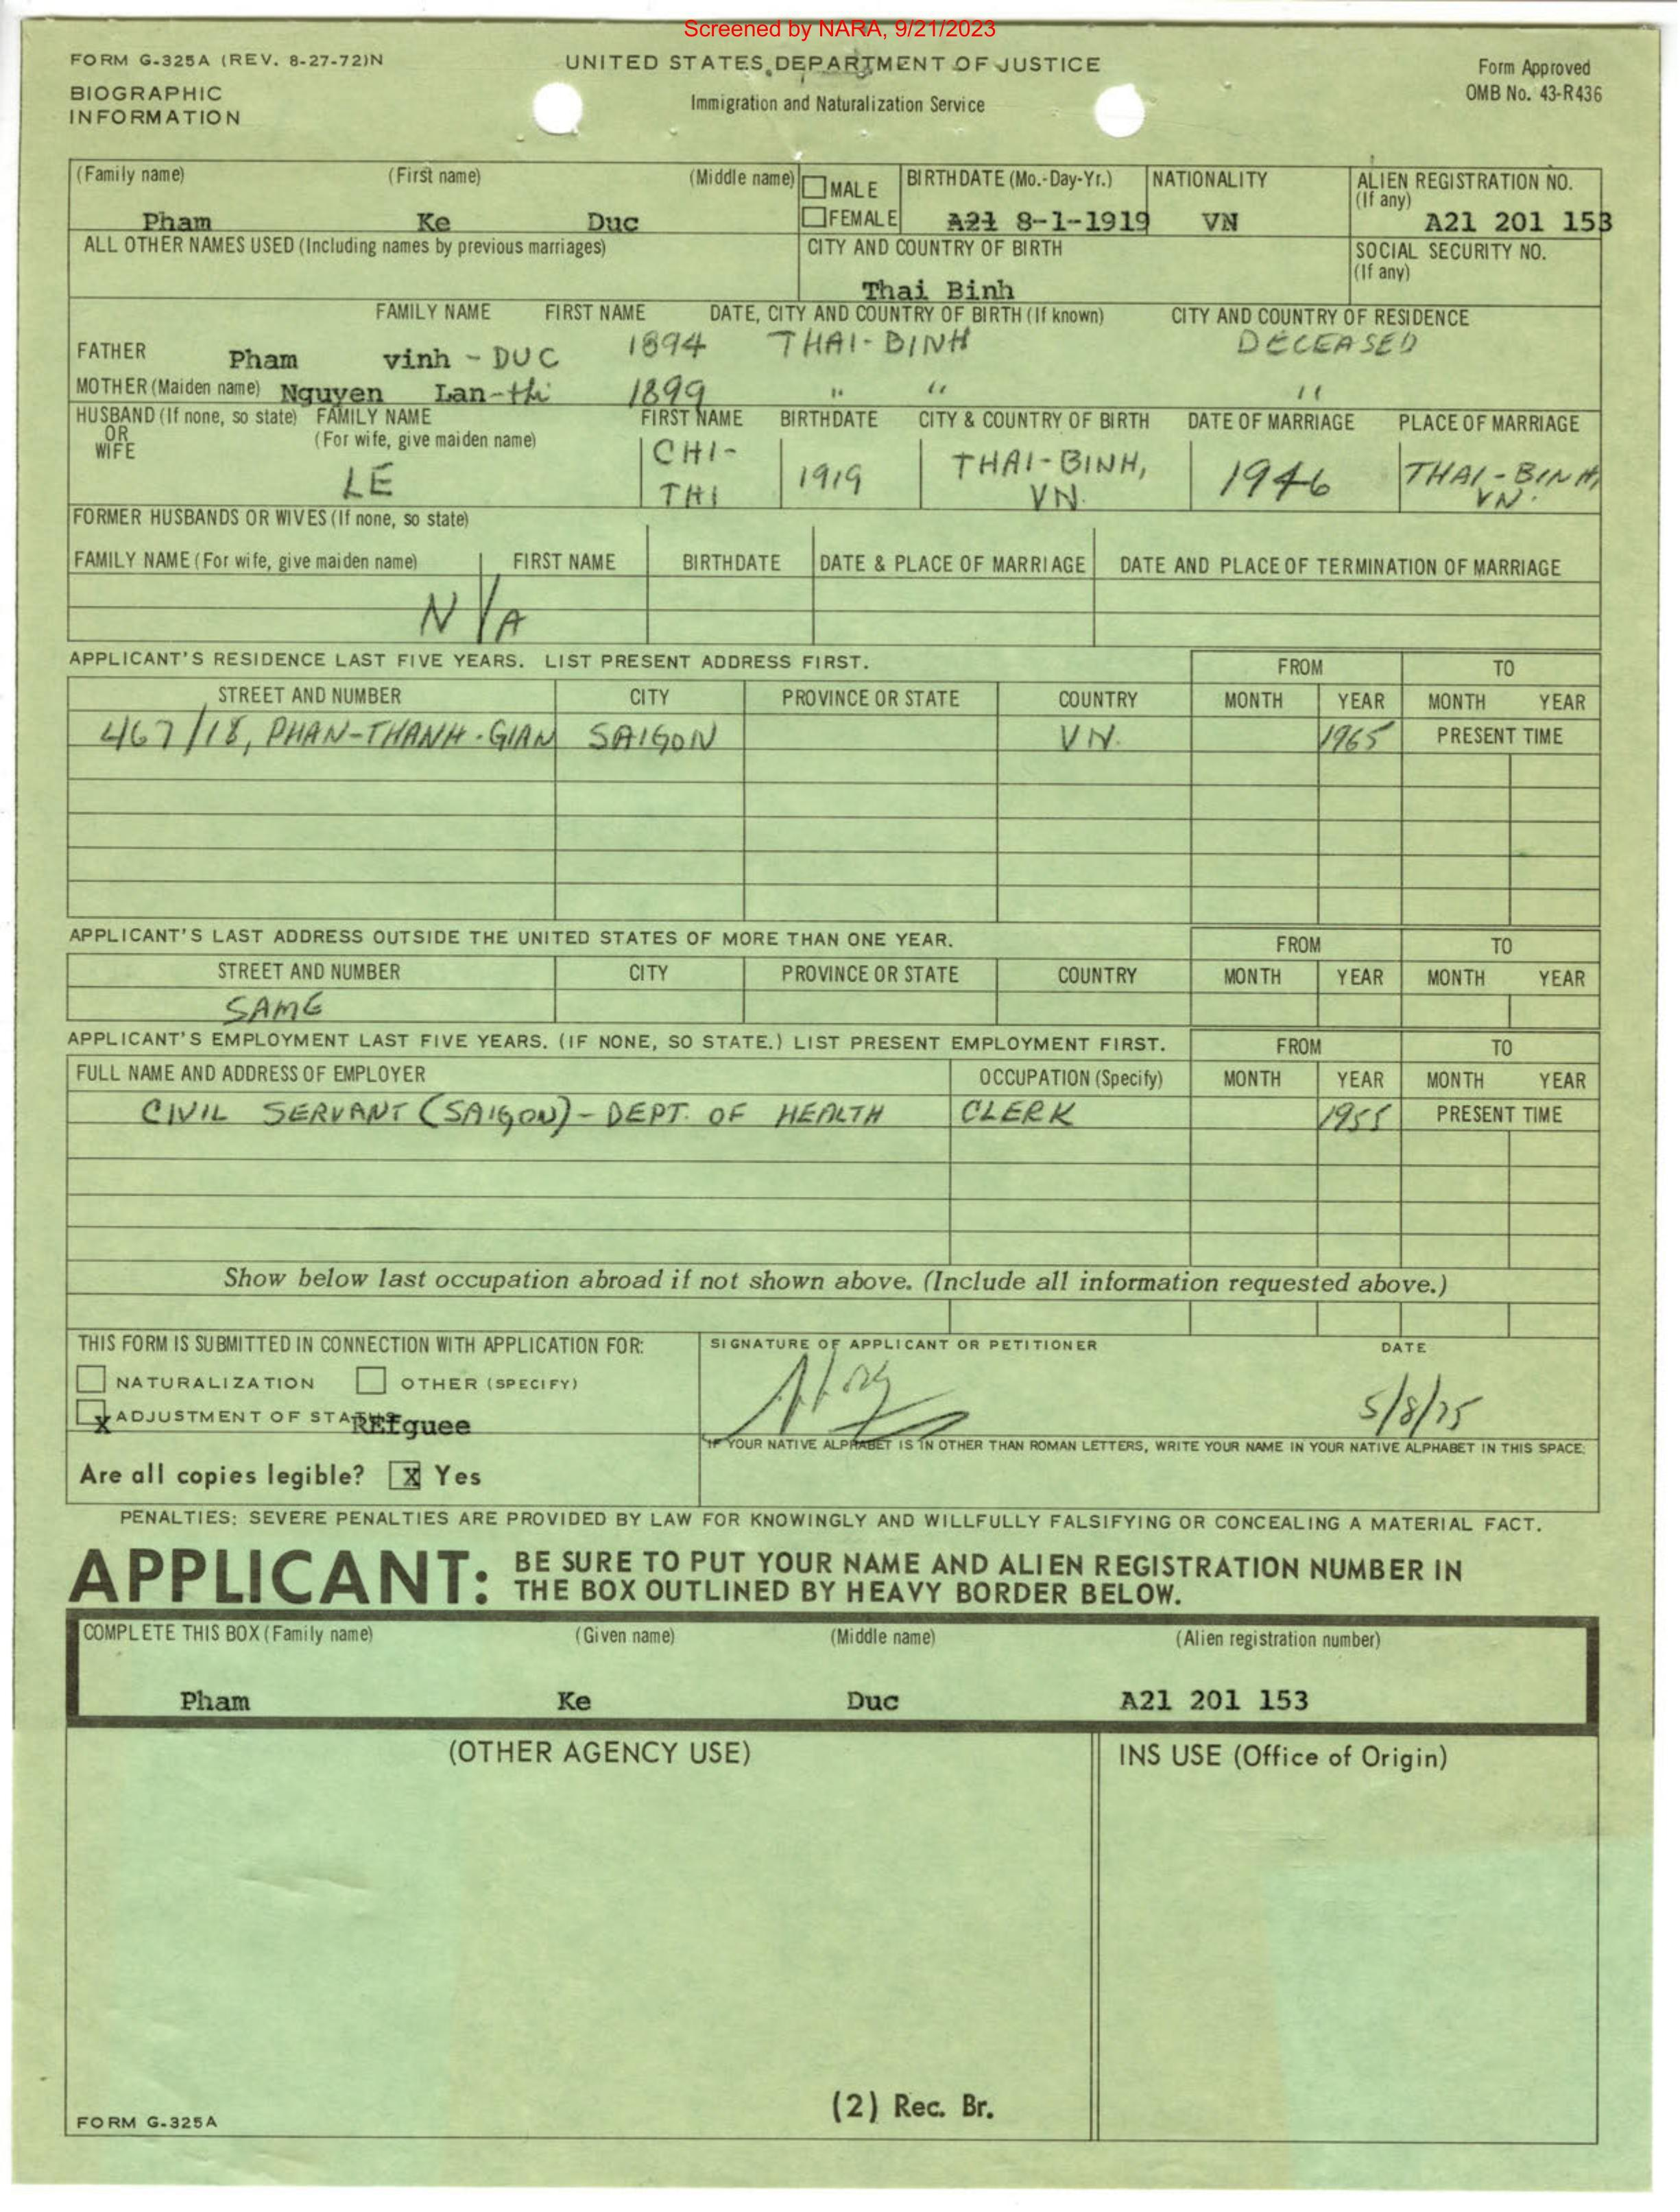 Screened by NARA, 9/21/2023
FORM G-325A (REV. 8-27-72)N
UNITED STATES DEPARTMENT OF JUSTICE
Form Approved
BIOGRAPHIC
Immigration and Naturalization Service
OMB No. 43-R436
INFORMATION
(Family name) (First name) (Middle name) MALE BIRTHDATE (Mo.-Day-Yr.) NATIONALITY ALIEN REGISTRATION NO.
(If any)
Pham Ke Duc FEMALE A21 8-1-1919 VN A21 201 153
ALL OTHER NAMES USED (Including names by previous marriages) CITY AND COUNTRY OF BIRTH SOCIAL SECURITY NO.
(If any)
Thai Binh
FAMILY NAME FIRST NAME DATE, CITY AND COUNTRY OF BIRTH (If known) CITY AND COUNTRY OF RESIDENCE
FATHER Pham vinh - DUC 1894 THAI-BINH DECEASED
MOTHER (Maiden name) Nguyen Lan-thi 1899 " " "
HUSBAND (If none, so state) FAMILY NAME FIRST NAME BIRTHDATE CITY & COUNTRY OF BIRTH DATE OF MARRIAGE PLACE OF MARRIAGE
OR (For wife, give maiden name)
WIFE
LE CHI- 1919 THAI-BINH, 1946 THAI-BINH,
THI VN. VN.
FORMER HUSBANDS OR WIVES (If none, so state)
FAMILY NAME (For wife, give maiden name) FIRST NAME BIRTHDATE DATE & PLACE OF MARRIAGE DATE AND PLACE OF TERMINATION OF MARRIAGE
N/A
APPLICANT'S RESIDENCE LAST FIVE YEARS. LIST PRESENT ADDRESS FIRST. FROM TO
STREET AND NUMBER CITY PROVINCE OR STATE COUNTRY MONTH YEAR MONTH YEAR
467/18, PHAN-THANH-GIAN SAIGON VN. 1965 PRESENT TIME
APPLICANT'S LAST ADDRESS OUTSIDE THE UNITED STATES OF MORE THAN ONE YEAR. FROM TO
STREET AND NUMBER CITY PROVINCE OR STATE COUNTRY MONTH YEAR MONTH YEAR
SAME
APPLICANT'S EMPLOYMENT LAST FIVE YEARS. (IF NONE, SO STATE.) LIST PRESENT EMPLOYMENT FIRST. FROM TO
FULL NAME AND ADDRESS OF EMPLOYER OCCUPATION (Specify) MONTH YEAR MONTH YEAR
CIVIL SERVANT (SAIGON) - DEPT. OF HEALTH CLERK 1955 PRESENT TIME
Show below last occupation abroad if not shown above. (Include all information requested above.)
THIS FORM IS SUBMITTED IN CONNECTION WITH APPLICATION FOR: SIGNATURE OF APPLICANT OR PETITIONER DATE
NATURALIZATION OTHER (SPECIFY)
X ADJUSTMENT OF STATUS REfguee 5/8/75
IF YOUR NATIVE ALPHABET IS IN OTHER THAN ROMAN LETTERS, WRITE YOUR NAME IN YOUR NATIVE ALPHABET IN THIS SPACE:
Are all copies legible? X Yes
PENALTIES: SEVERE PENALTIES ARE PROVIDED BY LAW FOR KNOWINGLY AND WILLFULLY FALSIFYING OR CONCEALING A MATERIAL FACT.
APPLICANT: BE SURE TO PUT YOUR NAME AND ALIEN REGISTRATION NUMBER IN
THE BOX OUTLINED BY HEAVY BORDER BELOW.
COMPLETE THIS BOX (Family name) (Given name) (Middle name) (Alien registration number)
Pham Ke Duc A21 201 153
(OTHER AGENCY USE) INS USE (Office of Origin)
(2) Rec. Br.
FORM G-325A